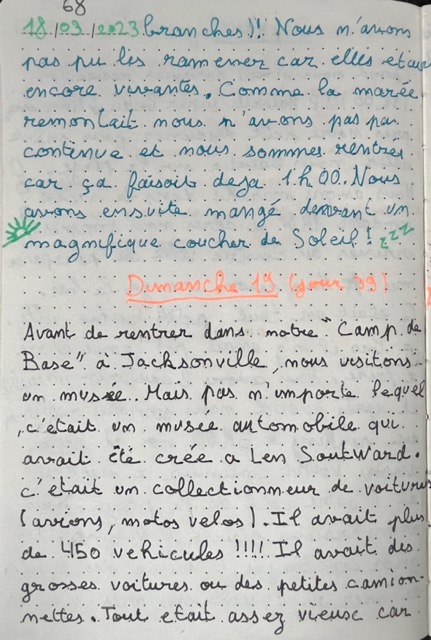 68
18/03/2023 branches)! Nous n'avons
pas pu les ramener car elles etaie
encore vivantes. Comme la marée
remontait nous n'avons pas pu
continue et nous sommes rentrés
car ça faisait deja 1h00. Nous
avons ensuite mangé devant un
magnifique coucher de Soleil! zzz
Dimanche 19 (jour 39)
Avant de rentrer dans notre "Camp de
Base" à Jacksonville, nous visitons
un musée. Mais pas n'importe lequel
, c'était un musée automobile qui
avait été crée a Len Southward.
c'était un collectionneur de voitures
(avions, motos velos). Il avait plus
de 450 vehicules !!!! Il avait des
grosses voitures ou des petites camion-
nettes. Tout etait assez vieux car